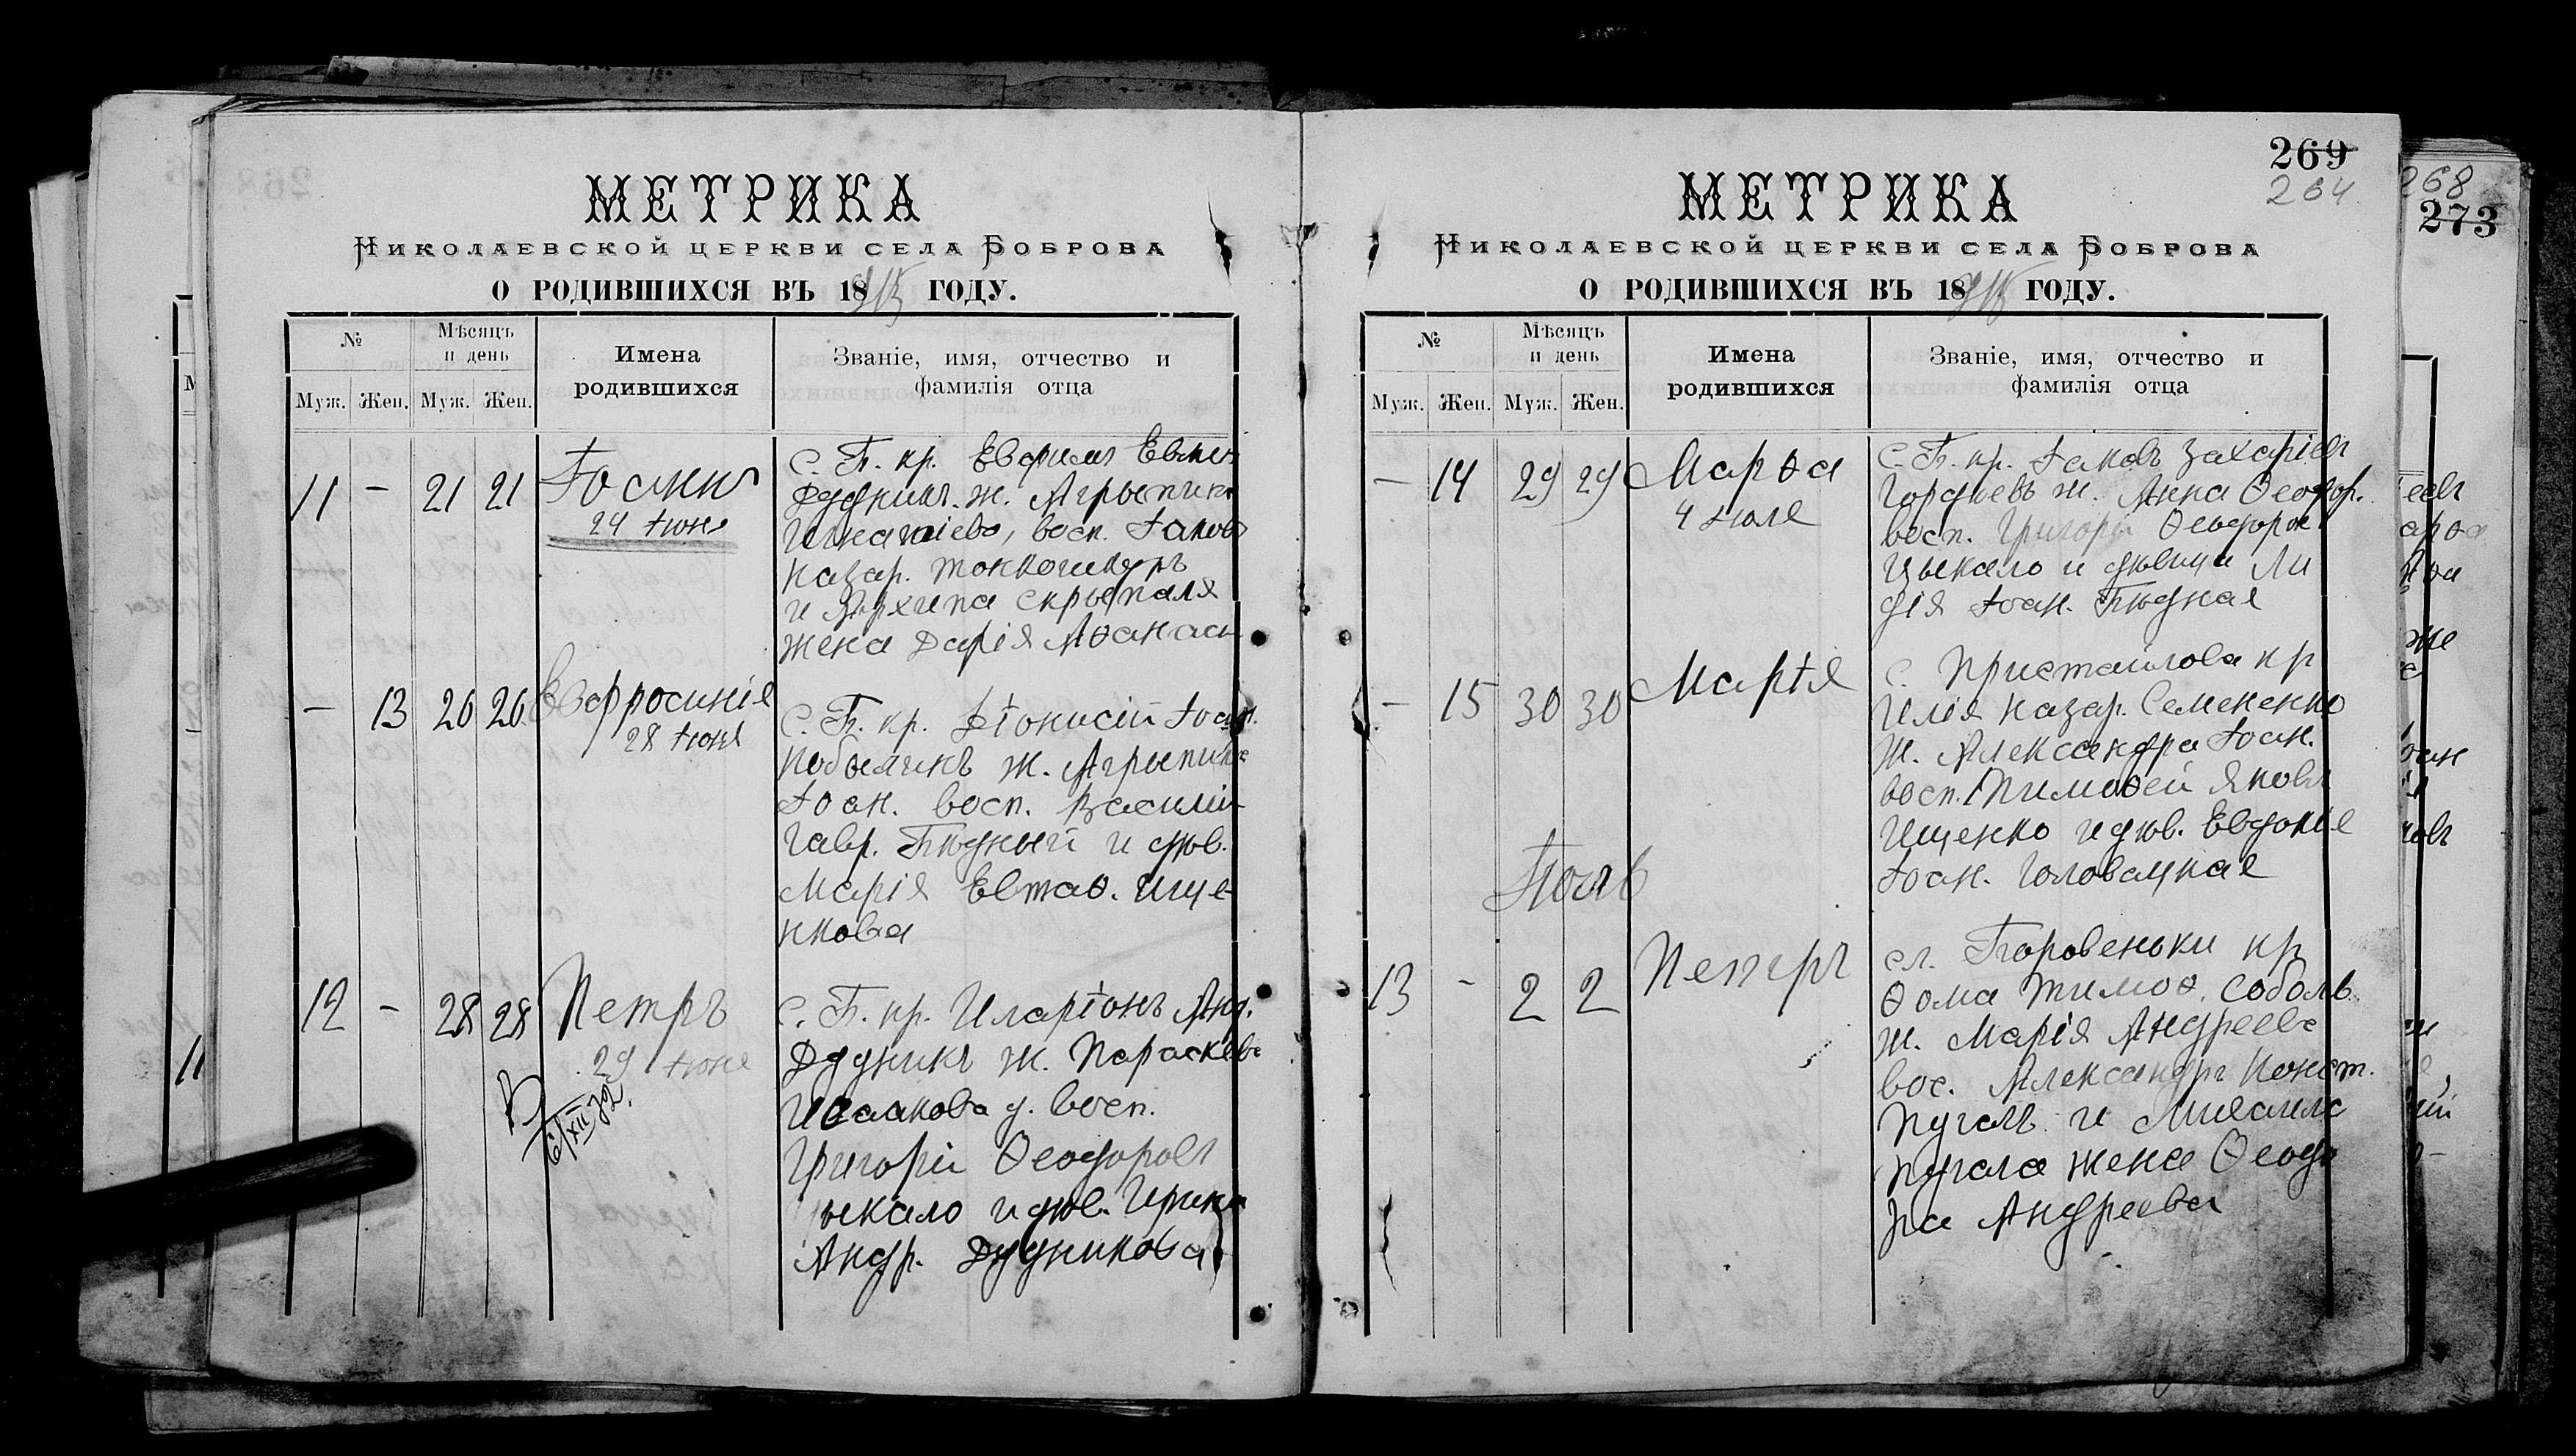 МЕТРИКА
НИКОЛАЕВСКОЙ ЦЕРКВИ СЕЛА БОБРОВА
О РОДИВШИХСЯ ВЪ 18 ГОДУ.
№
Мѣсяцъ и день
Имена родившихся
Званіе, имя, отчество и фамилія отца
Муж. Жен. Муж. Жен.
11 - 21 21
24 Іюня
С. Б. кр.
Дудникъ ж.
Игнатіева, восп. Іаковъ
Назар.
и Архипа Скрыпаля
жена Дарія Аѳанась
- 13 26 26 Евфросинія
28 Іюня
С. Б. кр. Діонисій Іоан.
ж. Агрыпина
Іоан. восп. Василій
Гавр. Бѣдный и дѣв.
Марія Евтаѳ. Ище
нкова
12 - 28 28 Петръ
29 Іюня
6/XII 72.
С. Б. кр. Иларіонъ Анд.
Дудникъ ж. Параскева
Исаакова д. восп.
Григорій Ѳеодоровъ
Цыкало и дѣв. Ирина
Андр. Дудникова
269
264
МЕТРИКА
НИКОЛАЕВСКОЙ ЦЕРКВИ СЕЛА БОБРОВА
О РОДИВШИХСЯ ВЪ 18 ГОДУ.
№
Мѣсяцъ и день
Имена родившихся
Званіе, имя, отчество и фамилія отца
Муж. Жен. Муж. Жен.
- 14 29 29 Марѳа
4 Іюля
С. Б. кр. Іаковъ Захаріевъ
Гордѣевъ ж. Анна Ѳеодор.
восп. Григорій Ѳеодоров
Цыкало и дѣвица Ли
дія Іоан. Бѣдная
- 15 30 30 Марія
с. Пристайлова кр
Илія Назар. Семененко
ж. Александра Іоан.
восп. Тимоѳей Яковл
Ищенко и дѣв. Евдокія
Іоан. Головацкая
Іюль
13 - 2 2 Петръ
сл. Боровеньки кр
Ѳома Тимоѳ. Соболь
ж. Марія Андреева
вос. Александръ Конст.
Пугачъ и Михаила
Пугача жена Ѳеодо
ра Андреева
268
273